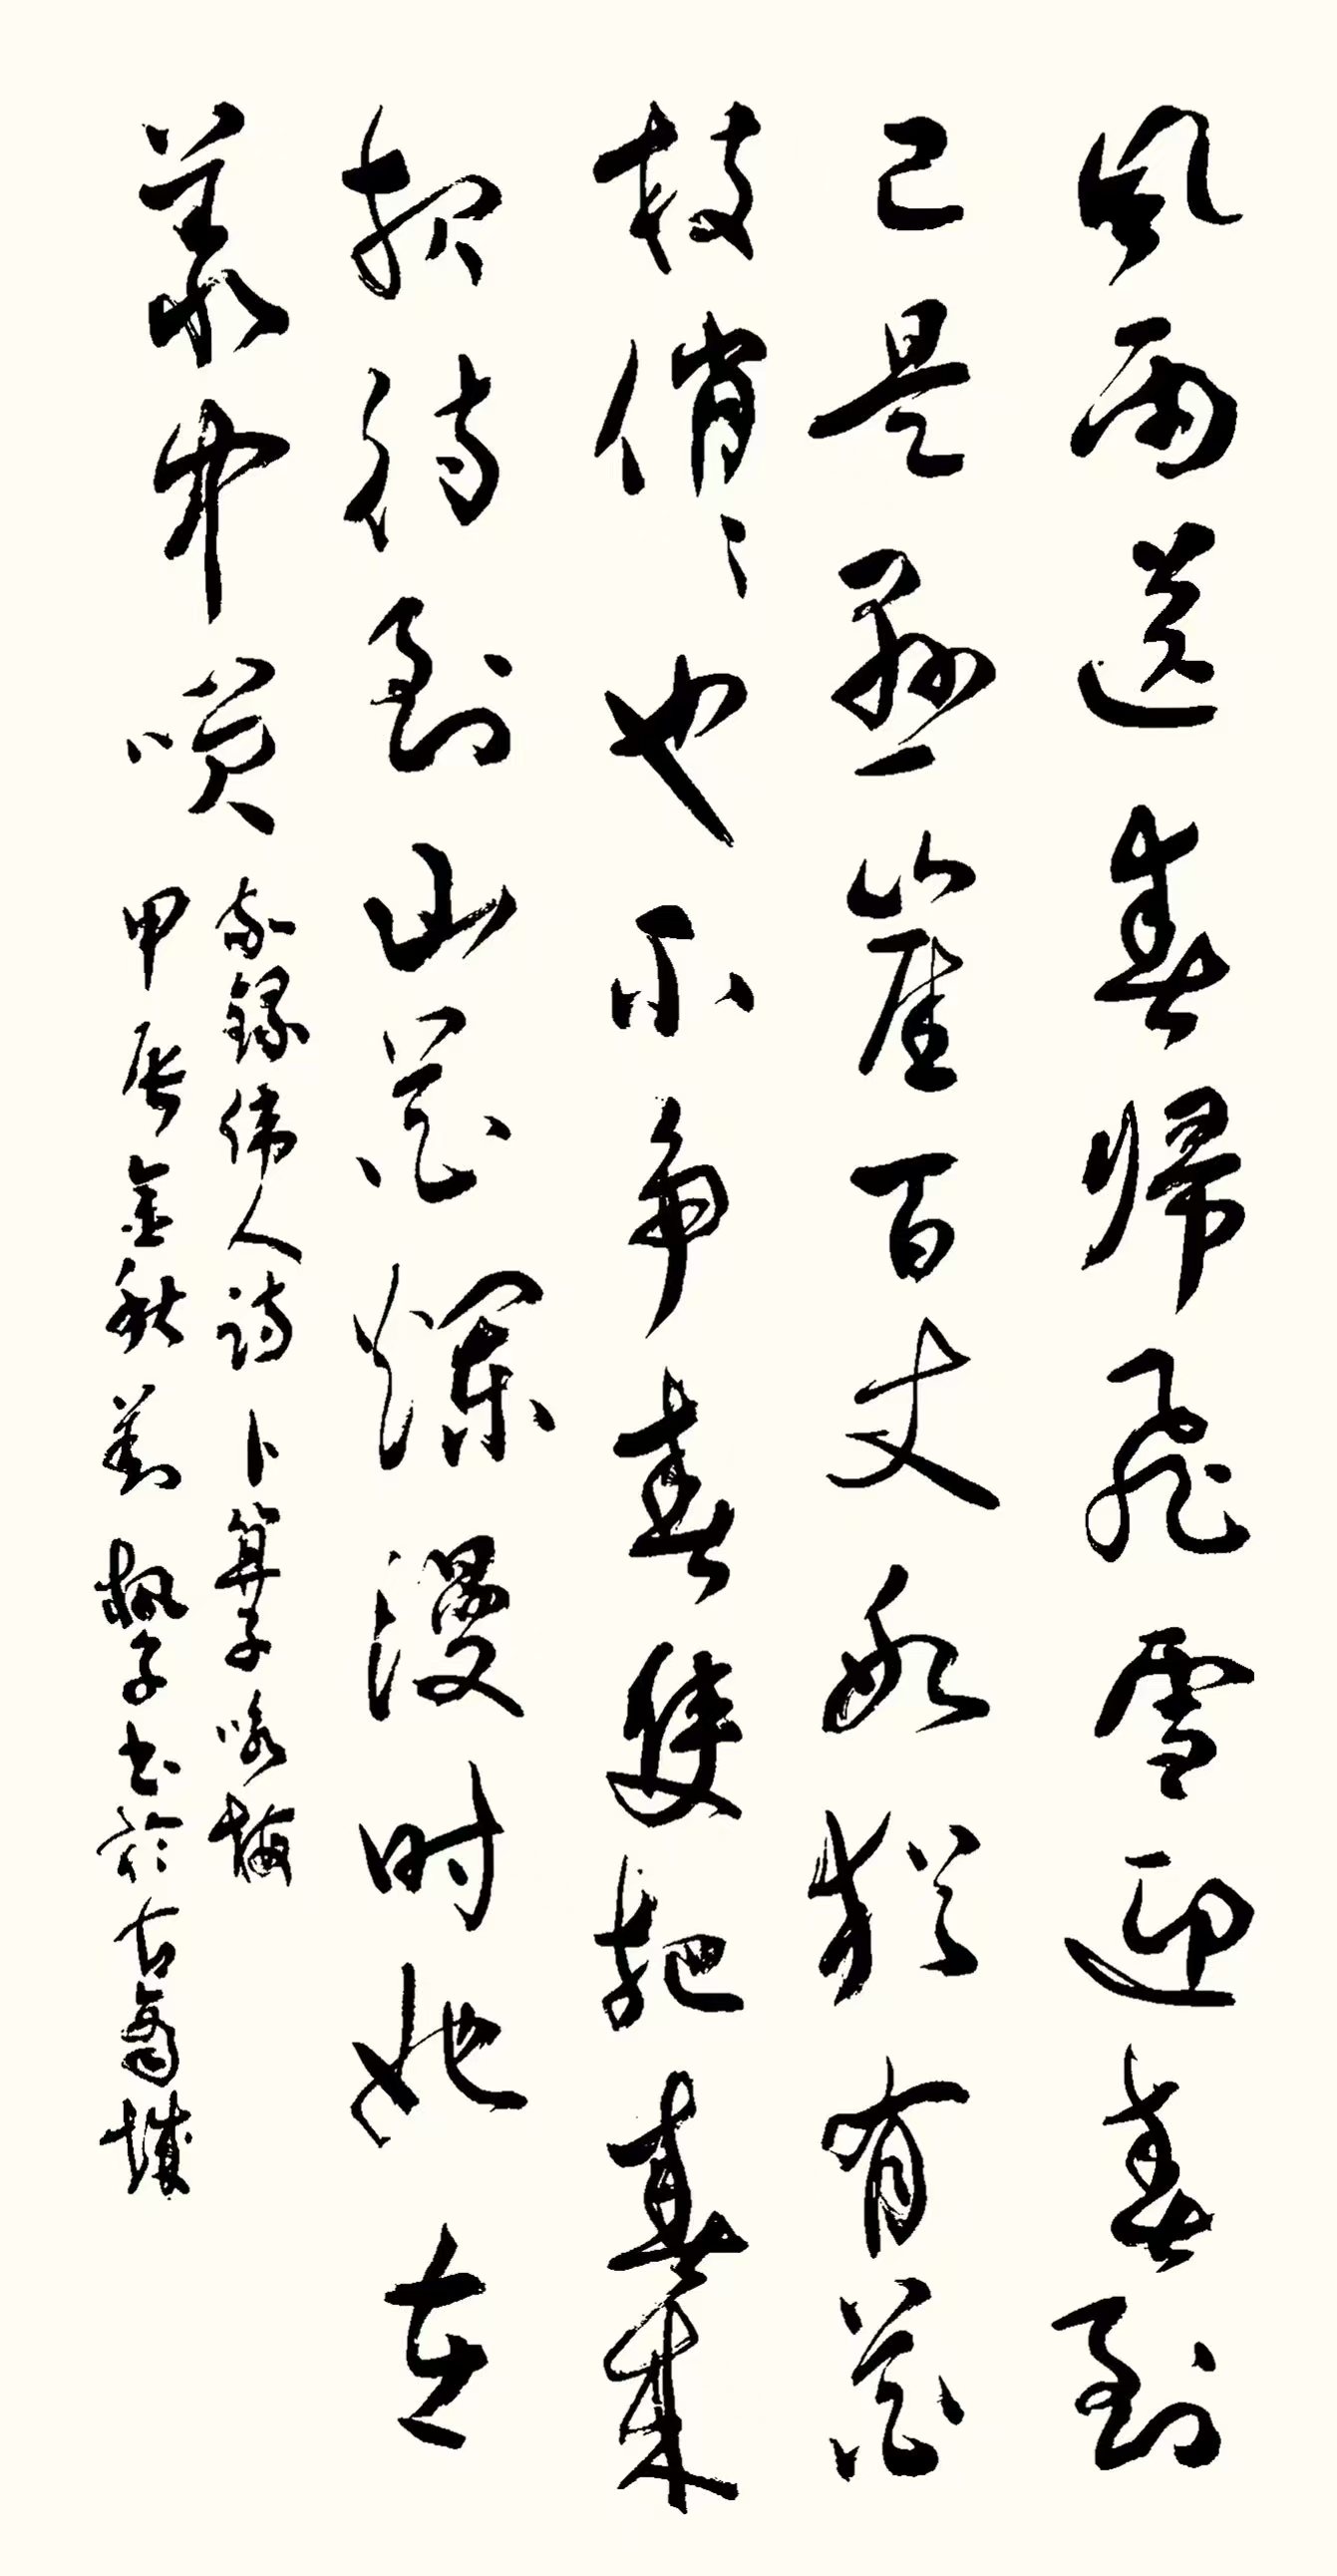 风雨送春归飞雪迎春到
已是悬崖百丈冰犹有花
枝俏〻也不争春隻把春来
报待到山花烂漫时她在
丛中咲
录伟人诗卜算子咏梅
甲辰金秋 枫子书於古城